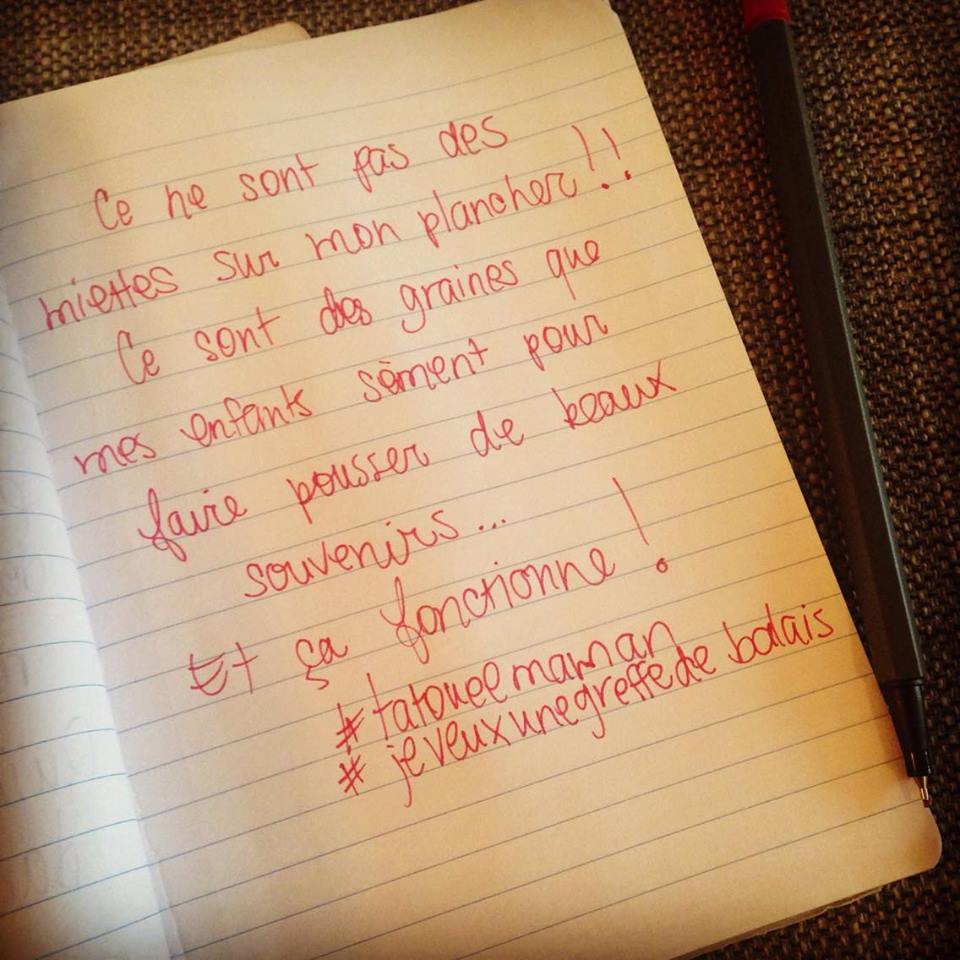 Ce ne sont pas des
miettes sur mon plancher!!
Ce sont des graines que
mes enfants sèment pour
faire pousser de beaux
souvenirs...
Et ça fonctionne!
#tatoueemaman
#jeveuxunegreffedebalais